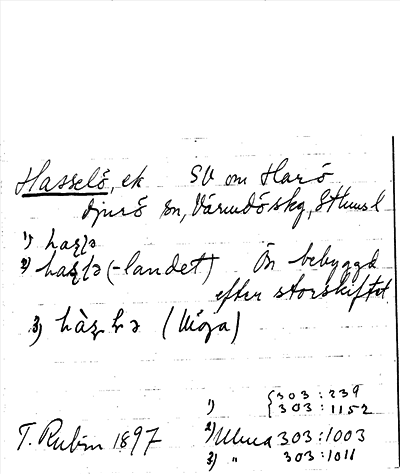 Hasselö, ek SV om Harö
Djurö sn, Värmdö skg, Sthms l
1) haʂʅə
2) haʂʅə (-landet) Ön bebyggd
efter storskiftet.
3) hàʂ (Möja)
1) { 303:239
303:1152
T. Rubin 1897 2) Ulma 303:1003
3) " 303:1011